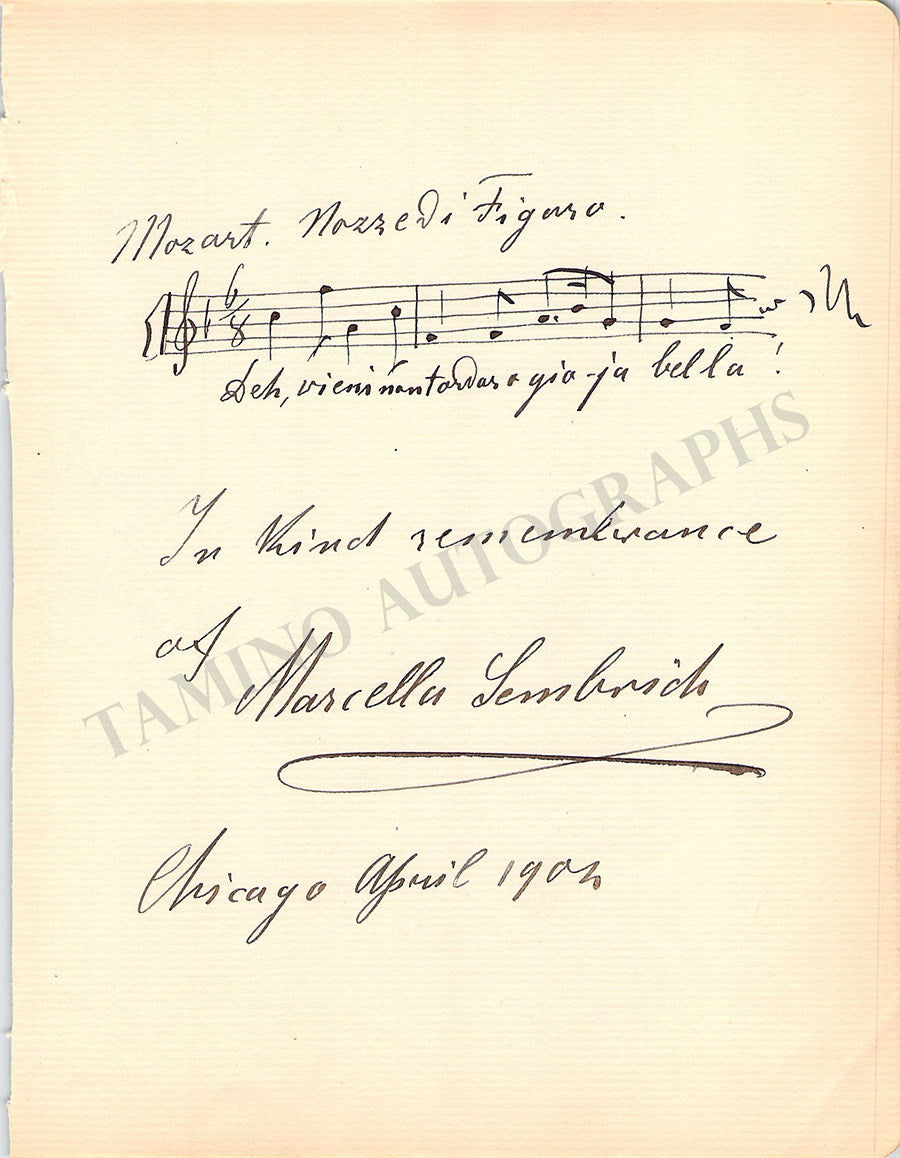 Mozart. Nozze di Figaro.
6
8
Deh, vieni non tardar o gio-ja bella!
In kind remembrance
of
Marcella Sembrich
Chicago April
TAMINO AUTOGRAPHS